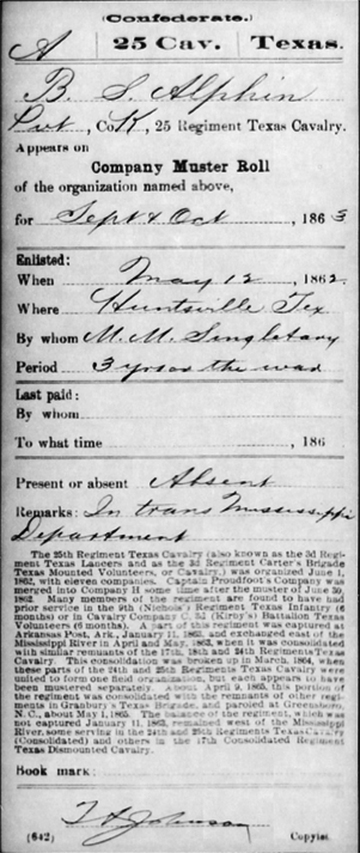 (Confederate.)
A | 25 Cav. | Texas.
B. S. Alphin
Pvt, Co K, 25 Regiment Texas Cavalry.
Appears on
Company Muster Roll
of the organization named above,
for Sept & Oct, 1863
Enlisted:
When May 12, 1862.
Where Huntsville Tex
By whom M. M. Singletary
Period 3 yrs or the war
Last paid:
By whom
To what time , 186
Present or absent Absent
Remarks: In trans Mississippi
Department
The 25th Regiment Texas Cavalry (also known as the 3d Regi-
ment Texas Lancers and as the 3d Regiment Carter's Brigade
Texas Mounted Volunteers, or Cavalry,) was organized June 1,
1862, with eleven companies. Captain Proudfoot's Company was
merged into Company H some time after the muster of June 30,
1862. Many members of the regiment are found to have had
prior service in the 9th (Nichols') Regiment Texas Infantry (6
months) or in Cavalry Company C, 52 (Kirby's) Battalion Texas
Volunteers (6 months). A part of this regiment was captured at
Arkansas Post, Ark., January 11, 1863, and exchanged east of the
Mississippi River in April and May, 1863, when it was consolidated
with similar remnants of the 17th, 18th and 24th Regiments Texas
Cavalry. This consolidation was broken up in March, 1864, when
these parts of the 24th and 25th Regiments Texas Cavalry were
united to form one field organization, but each appears to have
been mustered separately. About April 9, 1865, this portion of
the regiment was consolidated with the remnants of other regi-
ments in Granbury's Texas Brigade, and paroled at Greensboro,
N. C., about May 1, 1865. The balance of the regiment, which was
not captured January 11, 1863, remained west of the Mississippi
River, some serving in the 24th and 25th Regiments Texas Cavalry
(Consolidated) and others in the 17th Consolidated Regiment
Texas Dismounted Cavalry.
Book mark:
Johnson
(642) Copyist.